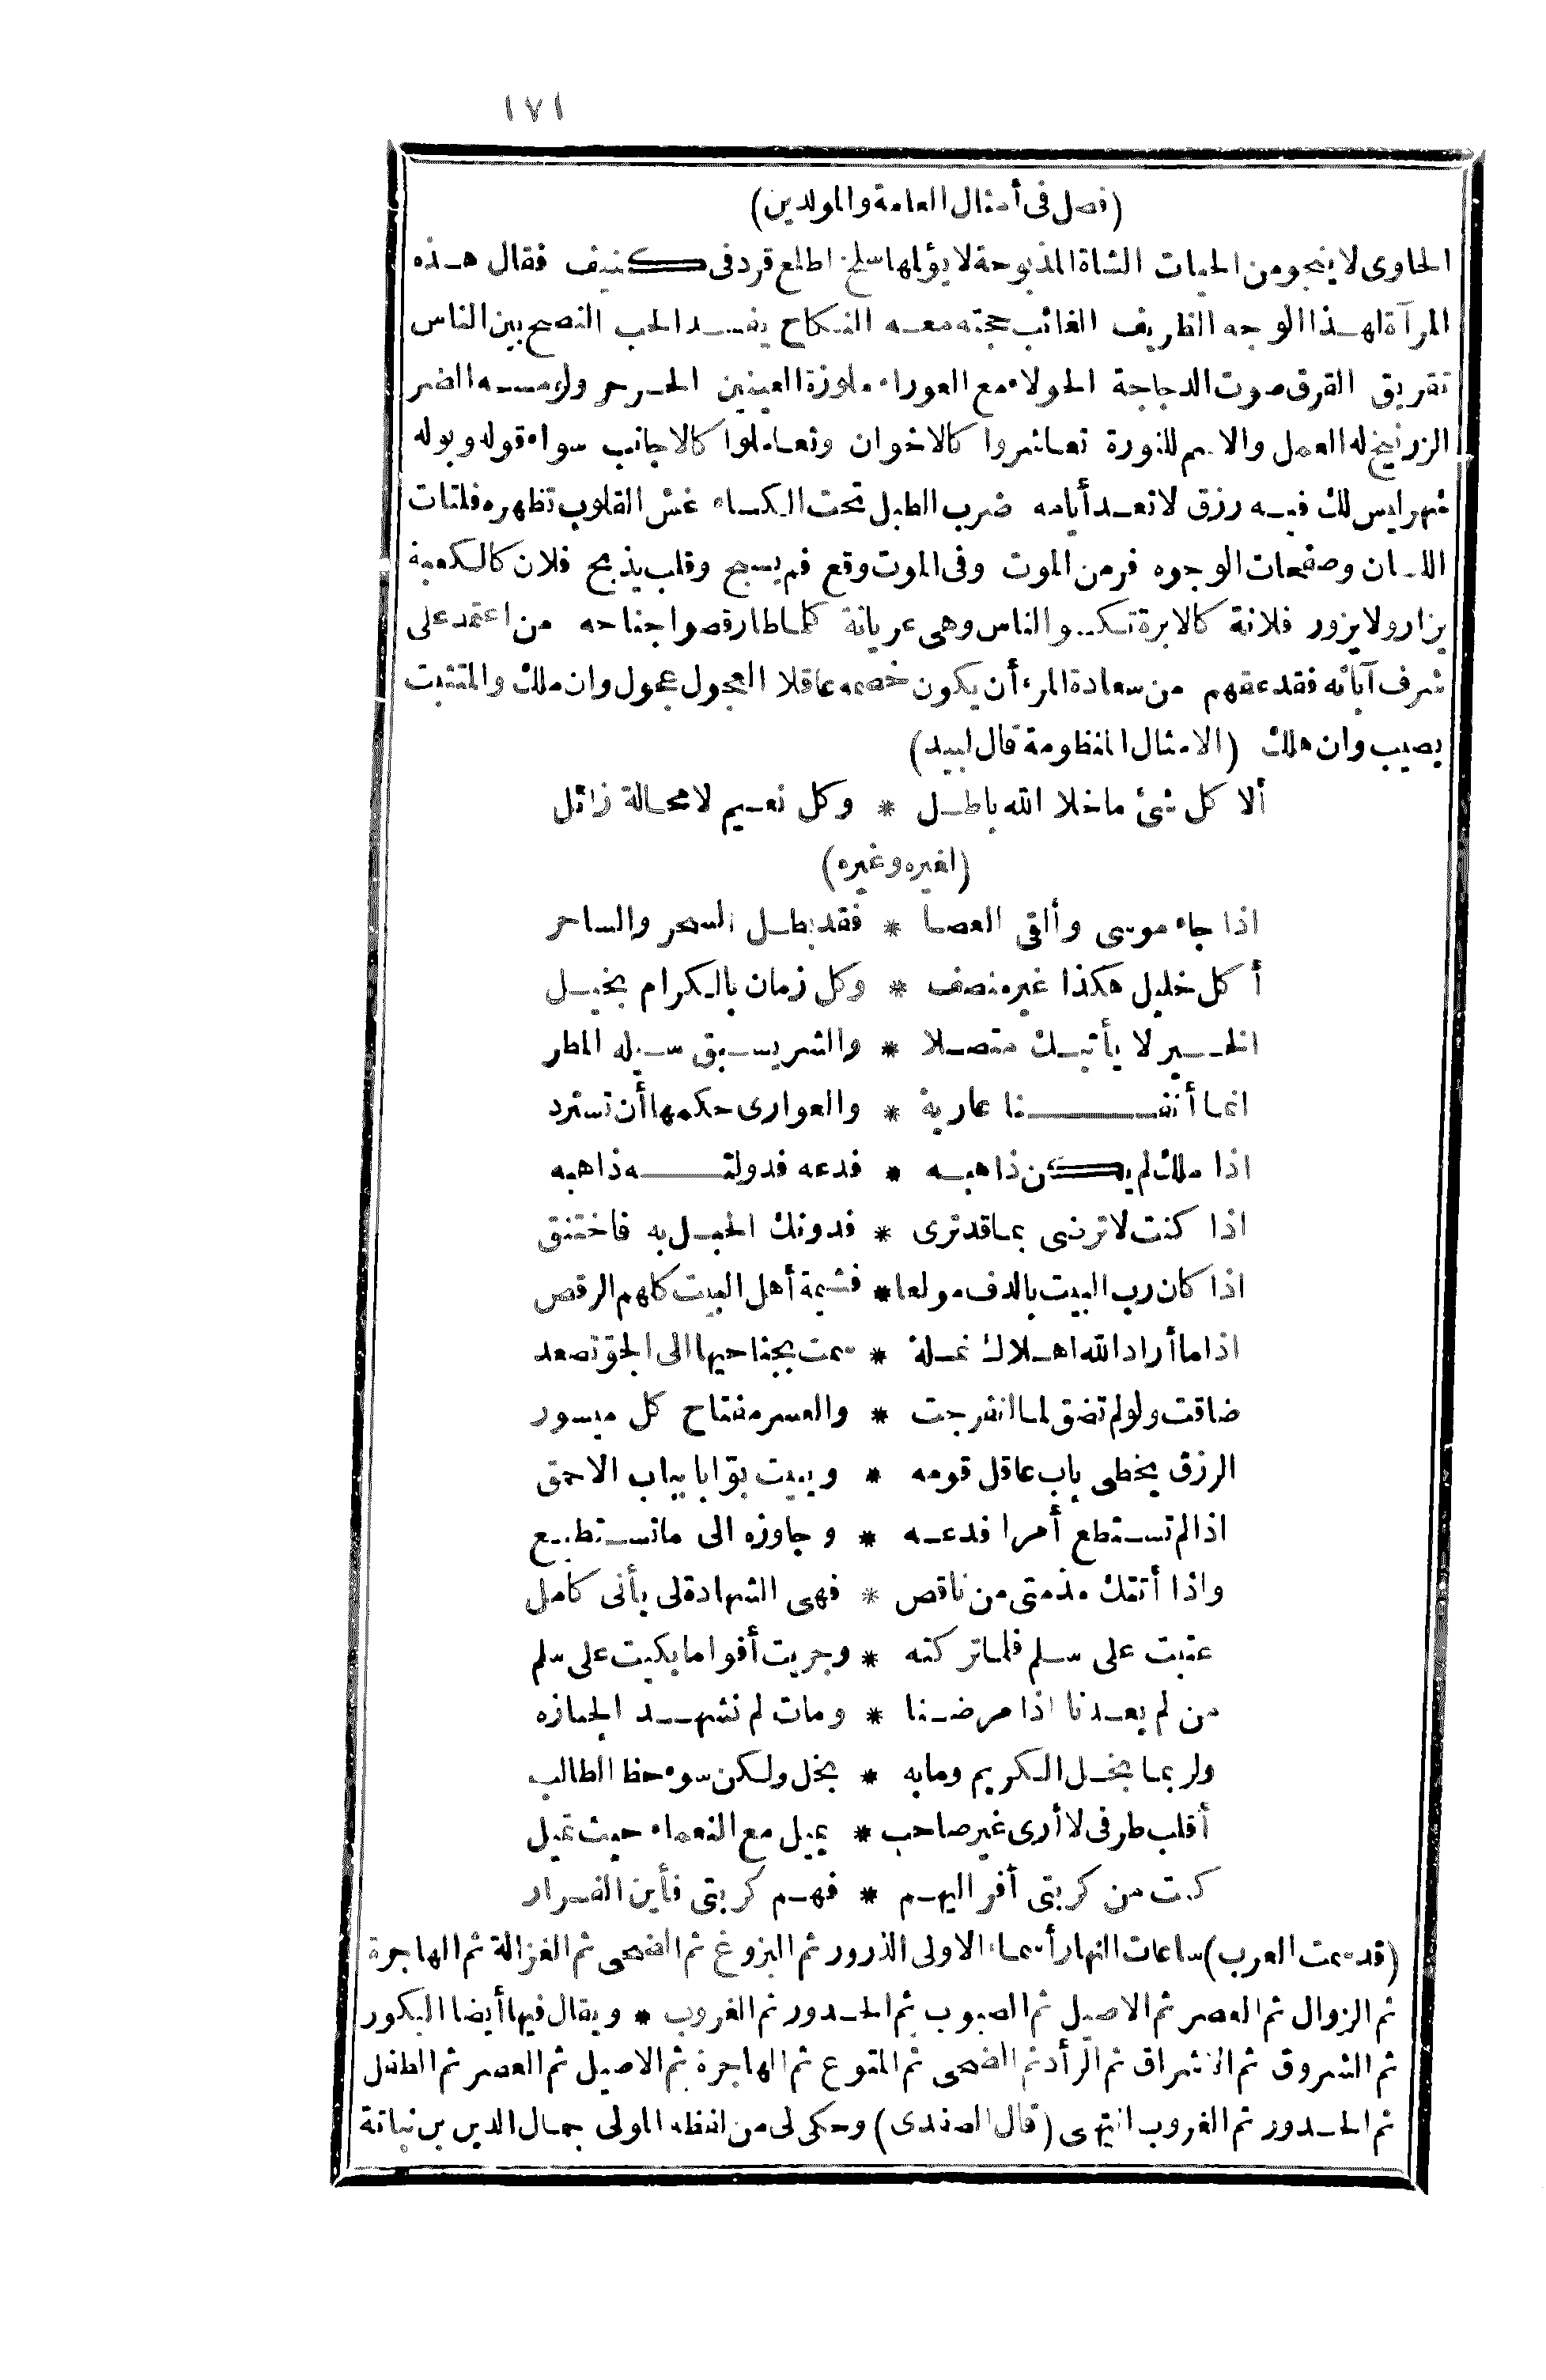 ١٧١
(فصل فى أمثال العامة والمولدين)
الحاوى لا ينجو من الحيات الشاة المذبوحة لا يؤلمها سلخ اطلع قرد فى كنيف فقال هذه
المرآة لهذا الوجه الظريف الغائب حجته معه النكاح يفسد الحب النصح بين الناس
تقريق القرق صوت الدجاجة الحولاء مع العوراء ملوزة العينين الحر حر ولو مسه الضر
الزرنيخ له العمل والاسم للنورة تعاشروا كالاخوان وتعاملوا كالاجانب سواء قوله وبوله
شهر ليس لك فيه رزق لا تعد أيامه ضرب الطبل تحت الكساء غش القلوب تظهره فلتات
اللسان وصفحات الوجوه فر من الموت وفى الموت وقع فم يسبح وقلب يذبح فلان كالكعبة
يزار ولا يزور فلانة كالابرة تكسو الناس وهى عريانة كلما طار قصوا جناحه من اعتمد على
شرف آبائه فقد عقهم من سعادة المرء أن يكون خصمه عاقلا العجول عجول وان ملك والمتثبت
يصيب وان هلك (الامثال المنظومة قال لبيد)
ألا كل شئ ما خلا الله باطل * وكل نعيم لا محالة زائل
(لغيره وغيره)
اذا جاء موسى وألقى العصا * فقد بطل السحر والساحر
أكل خليل هكذا غير منصف * وكل زمان بالكرام بخيل
الخير لا يأتيك متصلا * والشر يسبق سيله المطر
انما أنفسنا عارية * والعوارى حكمها أن تسترد
اذا ملك لم يكن ذاهبه * فدعه فدولته ذاهبه
اذا كنت لا ترضى بما قد ترى * فدونك الحبل به فاختنق
اذا كان رب البيت بالدف مولعا * فشيمة أهل البيت كلهم الرقص
اذا ما أراد الله اهلاك نملة * سمت بجناحيها الى الجو تصعد
ضاقت ولو لم تضق لما انفرجت * والعسر مفتاح كل ميسور
الرزق يخطى باب عاقل قومه * ويبيت بوابا بباب الاحمق
اذا لم تستطع أمرا فدعه * وجاوزه الى ما تستطيع
واذا أتتك مذمتى من ناقص * فهى الشهادة لى بأنى كامل
عتبت على سلم فلما تركته * وجربت أقواما بكيت على سلم
من لم يعدنا اذا مرضنا * ومات لم نشهد الجنازه
ولربما بخل الكريم وما به * بخل ولكن سوء حظ الطالب
أقلب طرفى لا أرى غير صاحب * يميل مع النعماء حيث تميل
كنت من كربتى أفر اليهم * فهم كربتى فأين الفرار
(قد سمت العرب) ساعات النهار أسماء الاولى الذرور ثم البزوغ ثم الضحى ثم الغزالة ثم الهاجرة
ثم الزوال ثم العصر ثم الاصيل ثم الصبوب ثم الحدور ثم الغروب * ويقال فيها أيضا البكور
ثم الشروق ثم الاشراق ثم الرأد ثم الضحى ثم المتوع ثم الهاجرة ثم الاصيل ثم العصر ثم الطفل
ثم الحدور ثم الغروب انتهى (قال الصفدى) وحكى لى من لفظه المولى جمال الدين بن نباتة